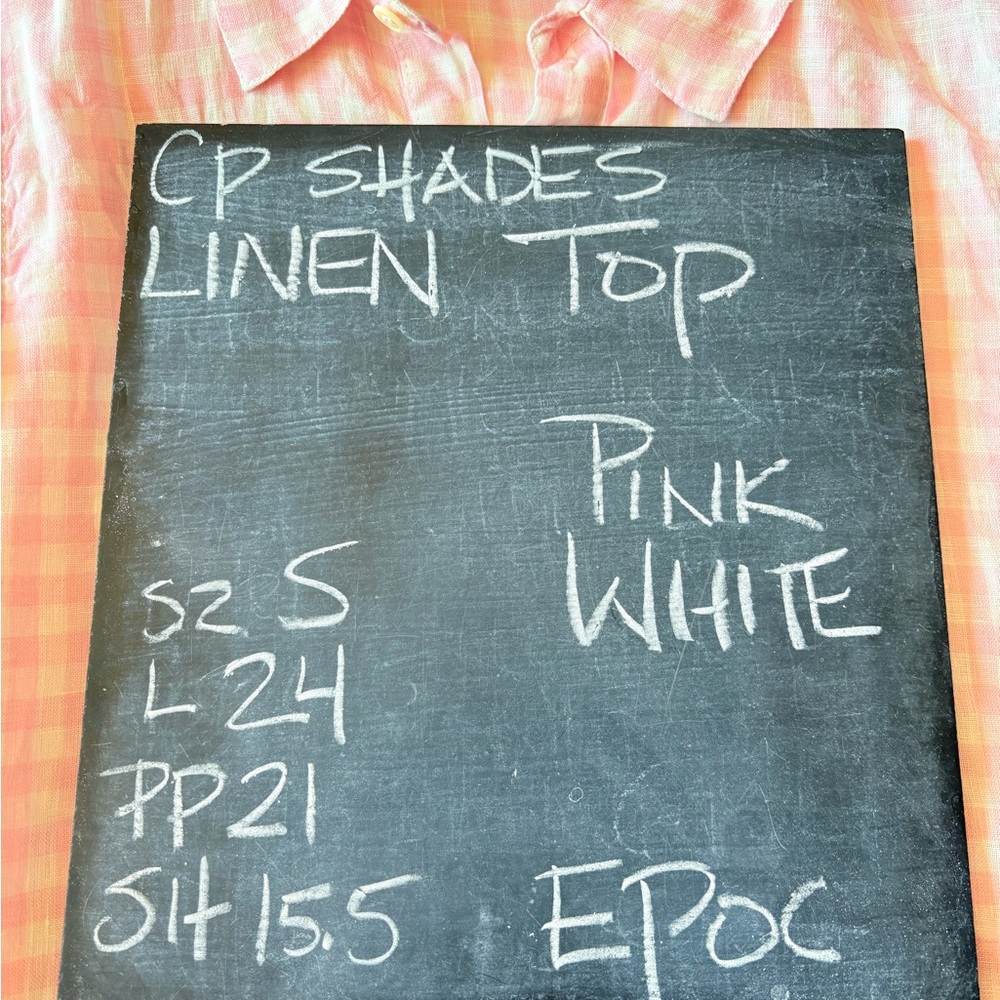 CP SHADES
LINEN TOP
PINK
WHITE
SZ S
L 24
PP 21
SH 15.5
EPOC